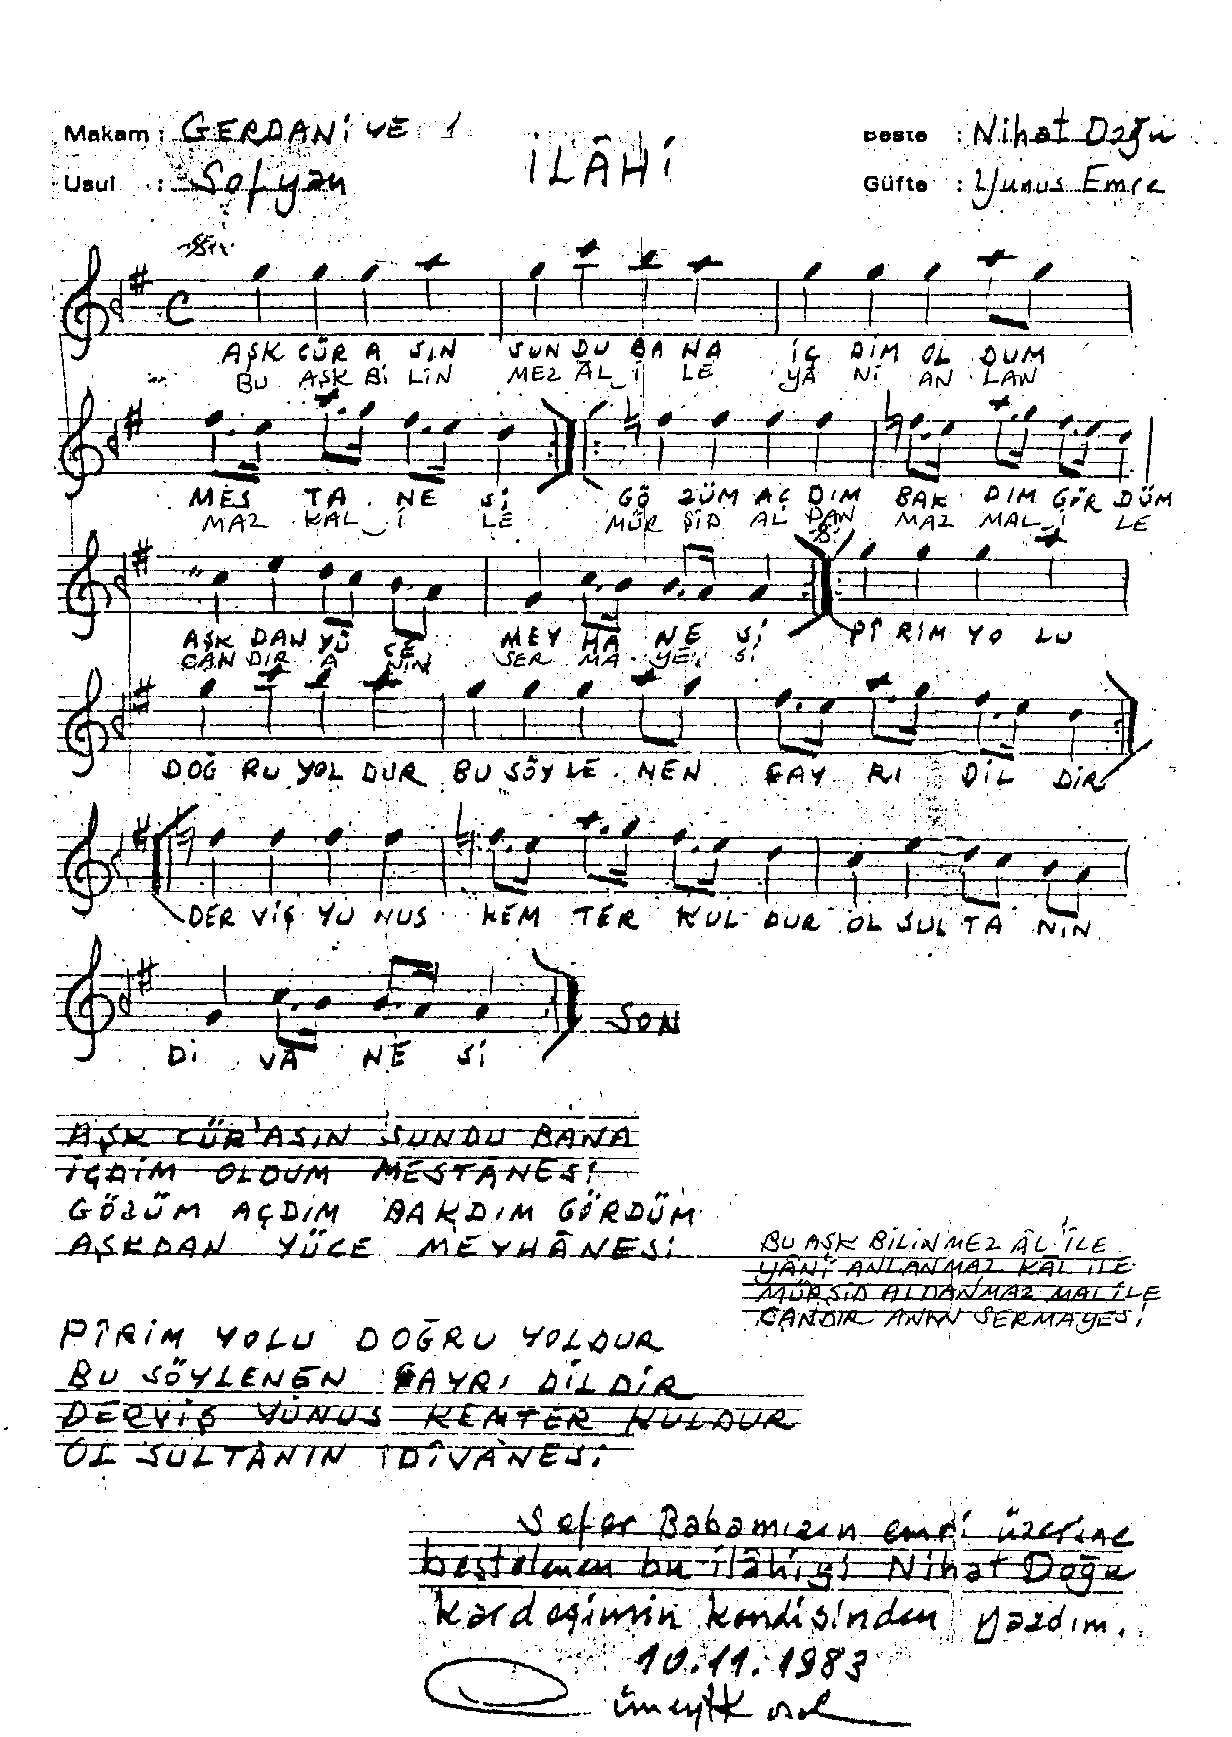 Makam : GERDANİYE 1
İLÂHİ
Beste : Nihat Doğu
Usul : Sofyan
Güfte : Yunus Emre
AŞK CÜR A SIN SUN DU BA NA İÇ DİM OL DUM
BU AŞK Bİ LİN MEZ ÂL İ LE YÂ Nİ AN LAN
MES TA NE Sİ GÖ ZÜM AÇ DIM BAK DIM GÖR DÜM
MAZ KAL İ LE MÜR ŞİD AL DAN MAZ MAL İ LE
AŞK DAN YÜ CE MEY HA NE Sİ PÎ RİM YO LU
CAN DIR A NIN SER MA YE Sİ
DOĞ RU YOL DUR BU SÖY LE NEN GAY RI DİL DİR
DER VİŞ YU NUS KEM TER KUL DUR OL SUL TA NIN
Dİ VA NE Sİ
SON
AŞK CÜR'ASIN SUNDU BANA
İÇDİM OLDUM MESTÂNESİ
GÖZÜM AÇDIM BAKDIM GÖRDÜM
AŞKDAN YÜCE MEYHÂNESİ
BU AŞK BİLİNMEZ ÂL İLE
YÂNİ ANLANMAZ KÂL İLE
MÜRŞİD ALDANMAZ MAL İLE
CANDIR ANIN SERMAYESİ
PÎRİM YOLU DOĞRU YOLDUR
BU SÖYLENEN GAYRI DİLDİR
DERVİŞ YUNUS KEMTER KULDUR
OL SULTANIN DÎVÂNESİ
Sefer Babamızın emri üzerine
bestelenen bu ilâhiyi Nihat Doğu
kardeşimin kendisinden yazdım.
10.11.1983